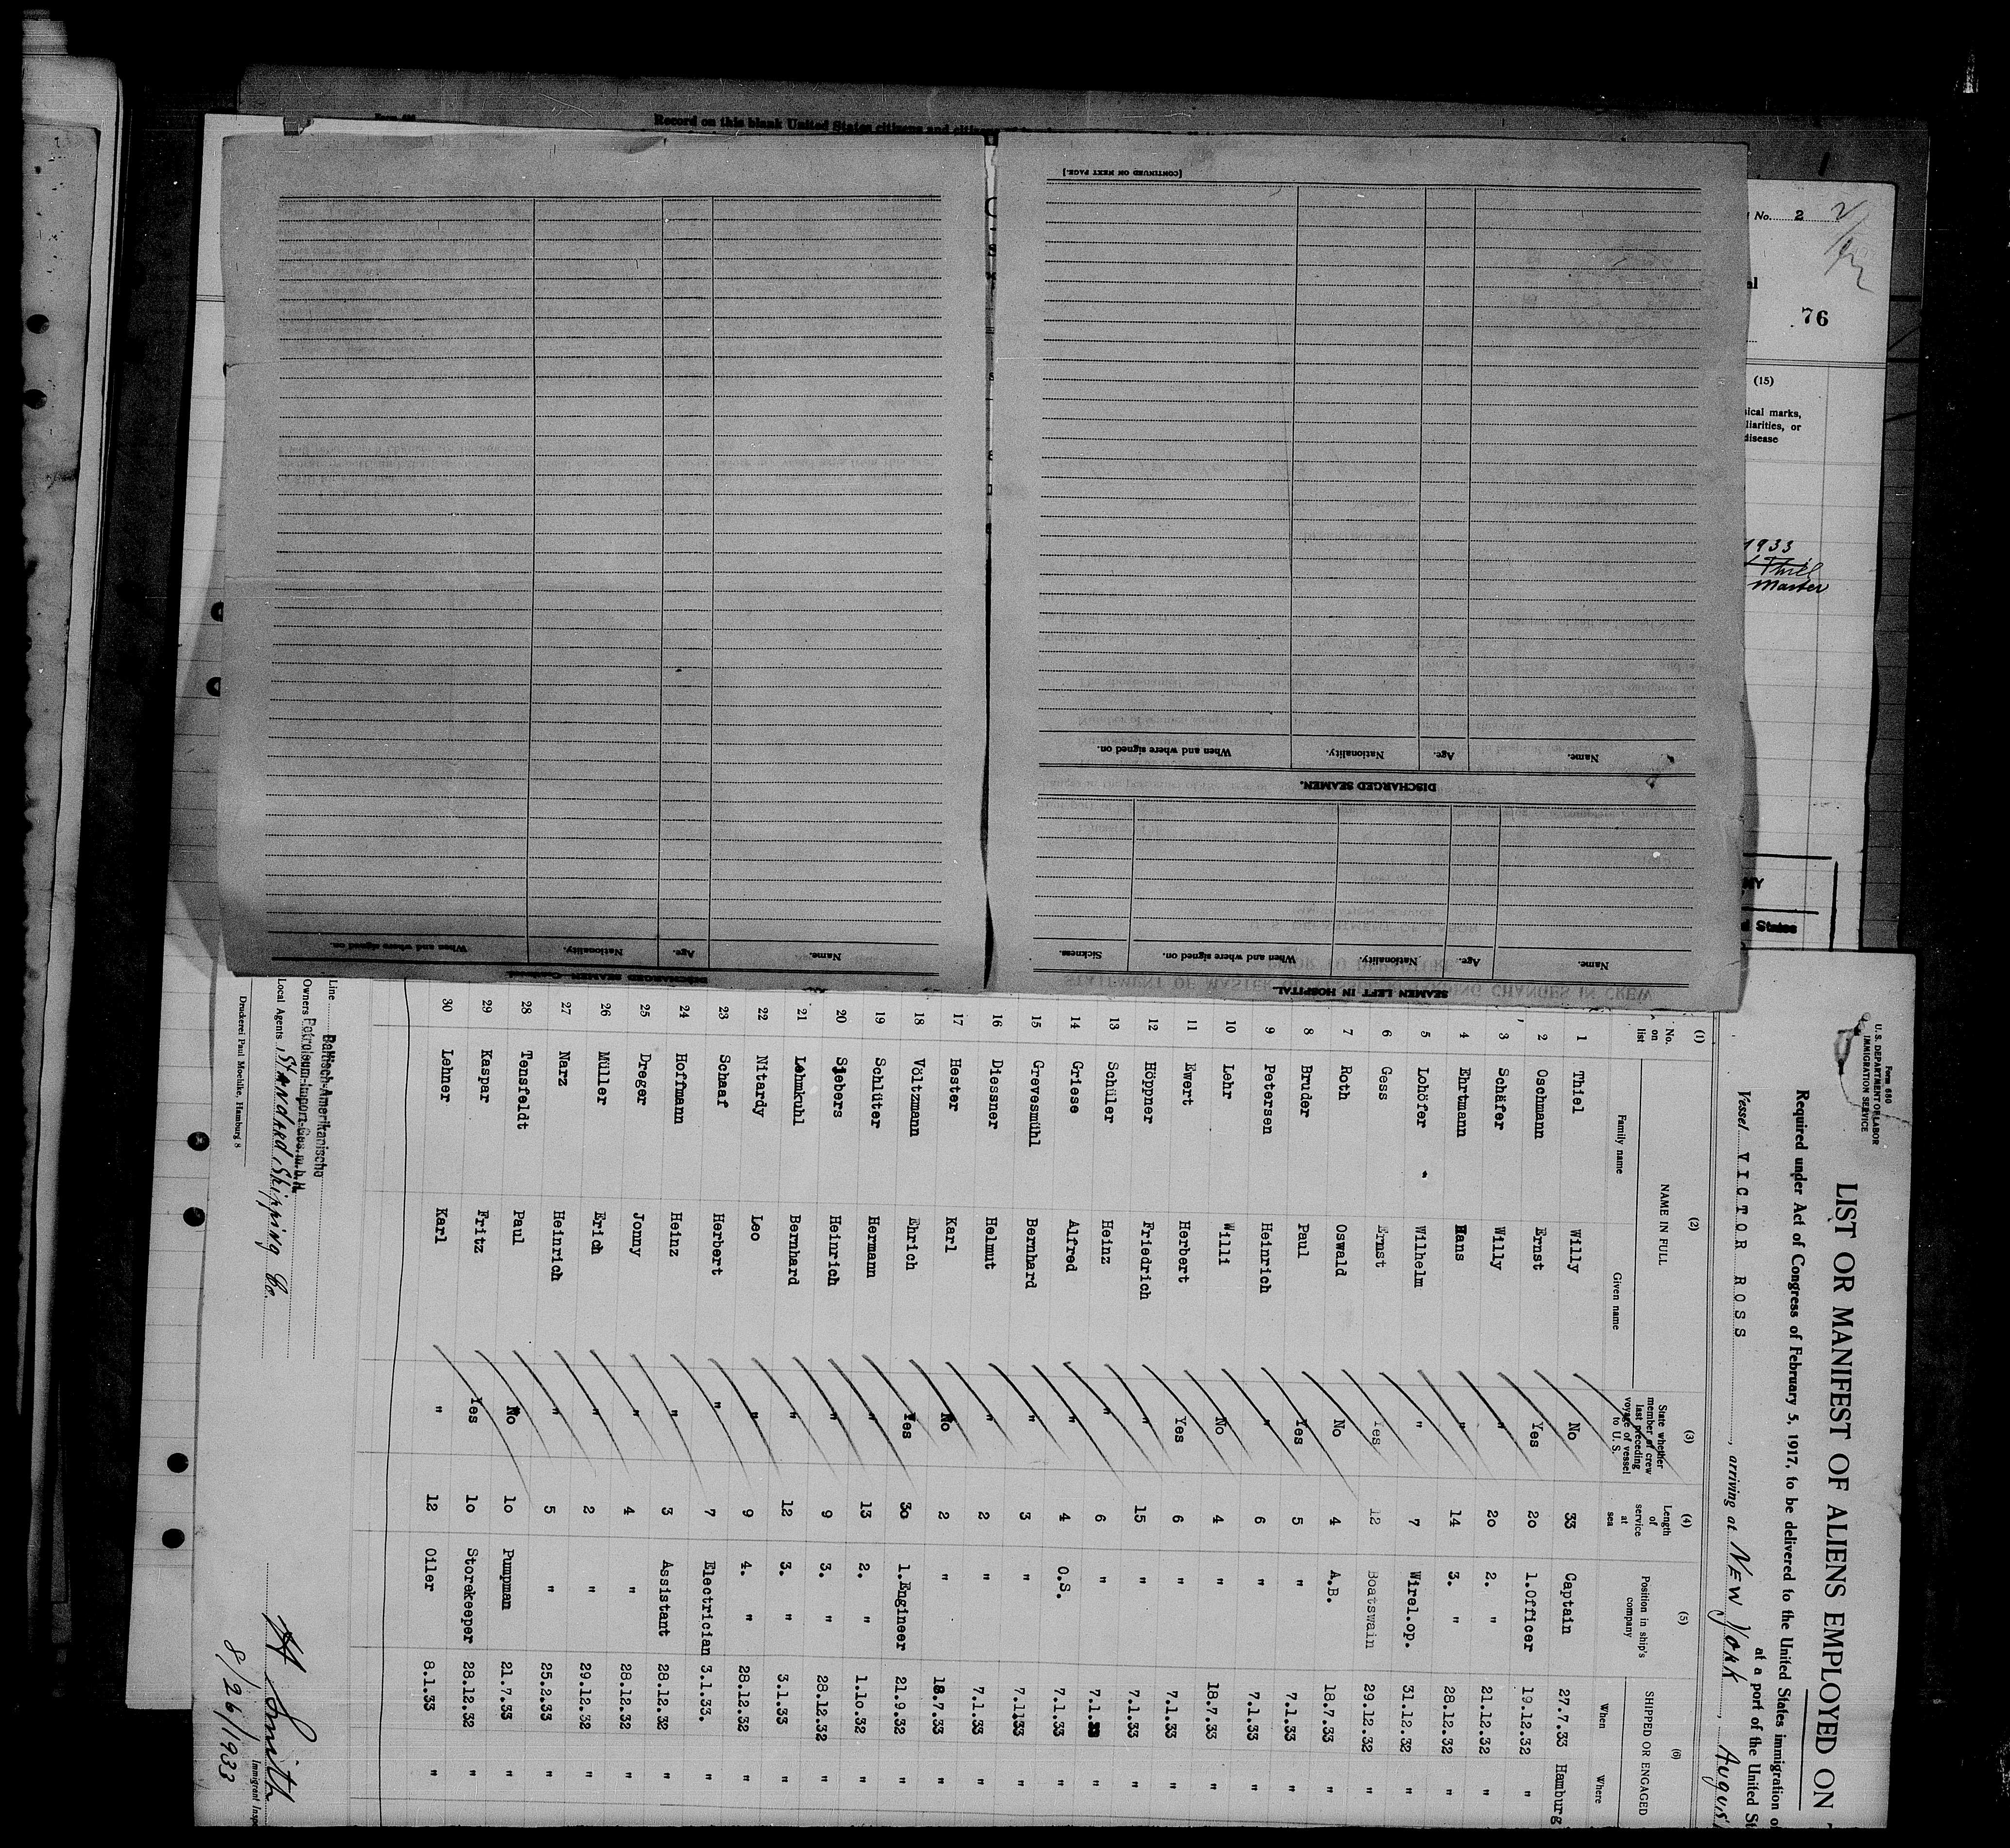 Record on this blank United States citizens and
[CONTINUED ON NEXT PAGE.]
Name. Age. Nationality. When and where signed on.
DISCHARGED SEAMEN.
Name. Age. Nationality. When and where signed on. Sickness.
SEAMEN LEFT IN HOSPITAL.
Name. Age. Nationality. When and where signed on.
DISCHARGED SEAMEN
No. 2
76
(15)
ical marks,
liarities, or
disease
1933
Thiel
Master
d States
Form 680
U. S. DEPARTMENT OF LABOR
IMMIGRATION SERVICE
LIST OR MANIFEST OF ALIENS EMPLOYED ON
Required under Act of Congress of February 5, 1917, to be delivered to the United States immigration
at a port of the United St
Vessel VICTOR ROSS, arriving at New York, August
(1) (2) (3) (4) (5) (6)
No. on list NAME IN FULL State whether member of crew last preceding voyage of vessel to U. S. Length of service at sea Position in ship's company SHIPPED OR ENGAGED
Family name Given name When Where
1 Thiel Willy No 33 Captain 27.7.33 Hamburg
2 Oschmann Ernst Yes 20 1.Officer 19.12.32 "
3 Schäfer Willy " 20 2. " 21.12.32 "
4 Ehrtmann Hans " 14 3. " 28.12.32 "
5 Lohöfer Wilhelm " 7 Wirel.op. 31.12.32 "
6 Gess Ernst Yes 12 Boatswain 29.12.32 "
7 Roth Oswald No 4 A.B. 18.7.33 "
8 Bruder Paul Yes 5 " 7.1.33 "
9 Petersen Heinrich " 6 " 7.1.33 "
10 Lehr Willi No 4 " 18.7.33 "
11 Ewert Herbert Yes 6 " 7.1.33 "
12 Höppner Friedrich " 15 " 7.1.33 "
13 Schüler Heinz " 6 " 7.1.33 "
14 Griese Alfred " 4 O.S. 7.1.33 "
15 Grevesmühl Bernhard " 3 " 7.1.33 "
16 Diessner Helmut " 2 " 7.1.33 "
17 Hester Karl No 2 " 18.7.33 "
18 Völtzmann Ehrich Yes 30 1.Engineer 21.9.32 "
19 Schlüter Hermann " 13 2. " 1.10.32 "
20 Sjebers Heinrich " 9 3. " 28.12.32 "
21 Lehmkuhl Bernhard " 12 3. " 3.1.33 "
22 Nitardy Leo " 9 4. " 28.12.32 "
23 Schaaf Herbert " 7 Electrician 3.1.33. "
24 Hoffmann Heinz " 3 Assistant 28.12.32 "
25 Dreger Jonny " 4 " 28.12.32 "
26 Müller Erich " 2 " 29.12.32 "
27 Narz Heinrich " 5 " 25.2.33 "
28 Tensfeldt Paul No 10 Pumpman 21.7.33 "
29 Kaspar Fritz Yes 10 Storekeeper 28.12.32 "
30 Lehner Karl " 12 Oiler 8.1.33 "
Line Baltisch-Amerikanische
Owners Petroleum-Import-Ges.m.b.H.
Local Agents Standard Shipping Co.
Druckerei Paul Moehlke, Hamburg 8
H Smith
Immigrant Insp
8/26/1933